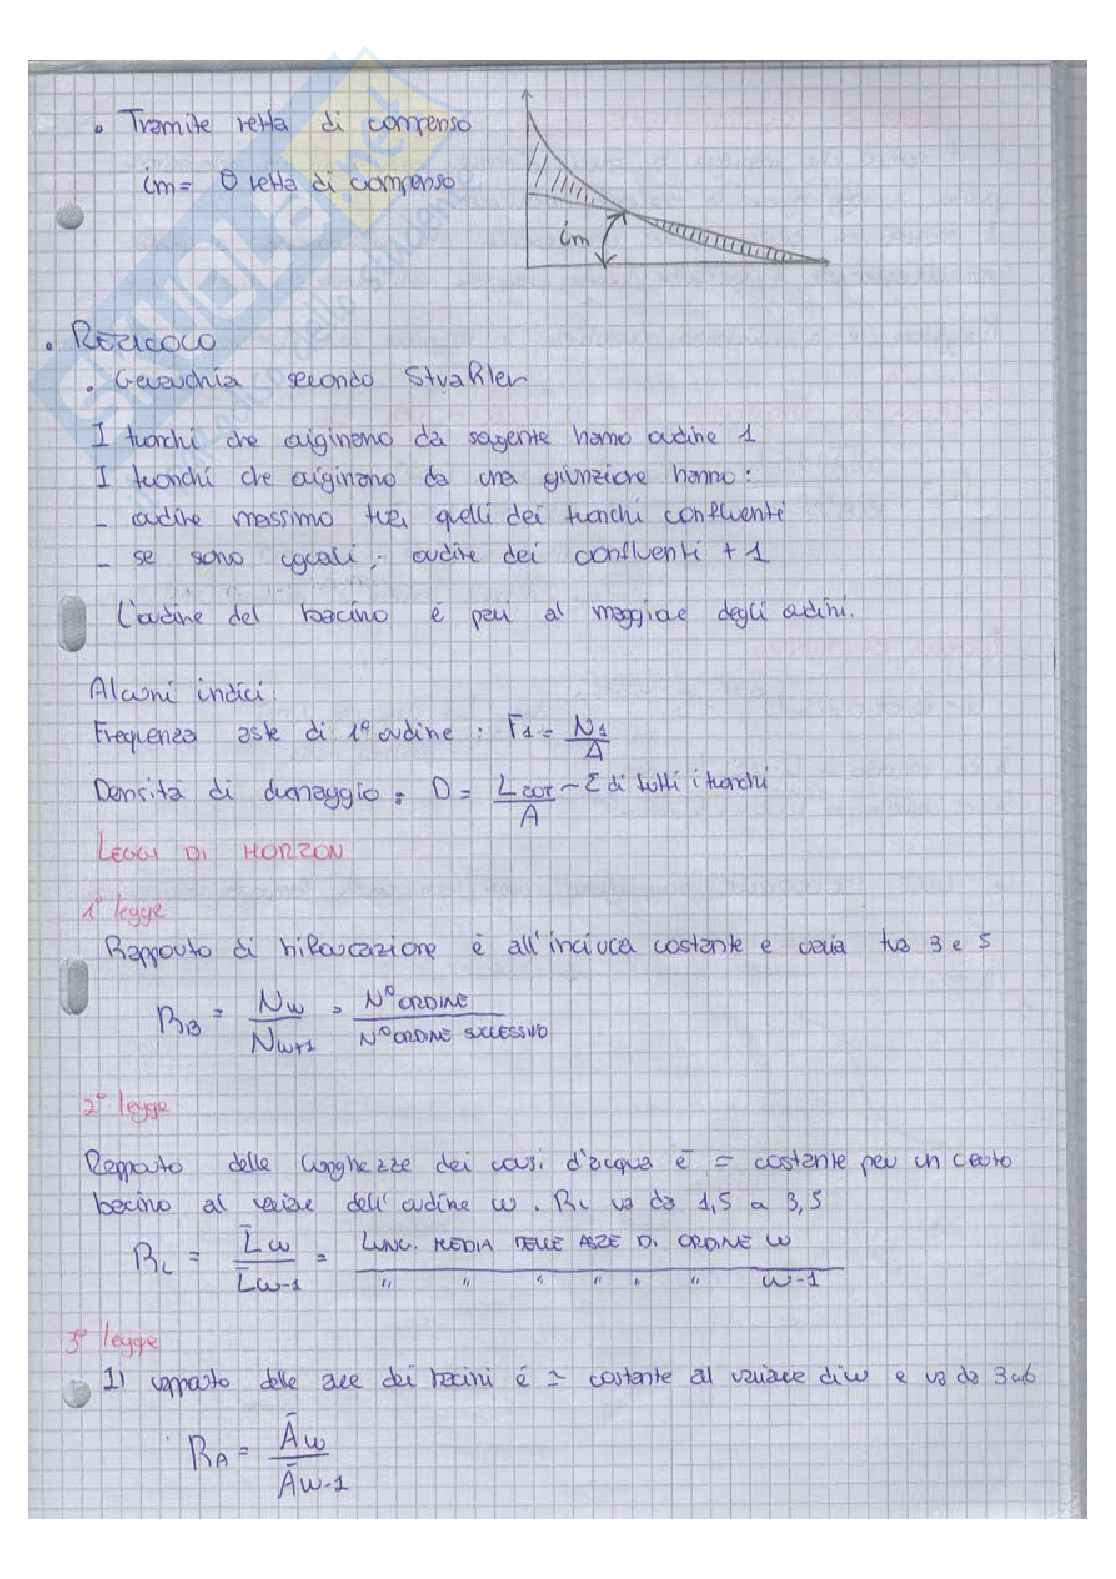 • Tramite retta di compenso
im = θ retta di compenso
im
• RETICOLO
• Gerarchia secondo Strahler
I tronchi che originano da sorgente hanno ordine 1
I tronchi che originano da una giunzione hanno:
- ordine massimo tra quelli dei tronchi confluenti
- se sono uguali: ordine dei confluenti + 1
L'ordine del bacino è pari al maggiore degli ordini.
Alcuni indici:
Frequenza aste di 1° ordine: F1 = N1/A
Densità di drenaggio: D = LTOT/A ~ Σ di tutti i tronchi
LEGGI DI HORZON
1° legge
Rapporto di biforcazione è all'incirca costante e varia tra 3 e 5
RB = Nw/Nw+1 = N° ORDINE/N° ORDINE SUCCESSIVO
2° legge
Rapporto delle lunghezze dei corsi d'acqua è = costante per un certo
bacino al variare dell'ordine w. RL va da 1,5 a 3,5
RL = L̄w/L̄w-1 = LUNG. MEDIA DELLE ASTE DI ORDINE W/" " " " " " W-1
3° legge
Il rapporto delle aree dei bacini è = costante al variare di w e va da 3 a 6
RA = Āw/Āw-1
SKUOLA.net